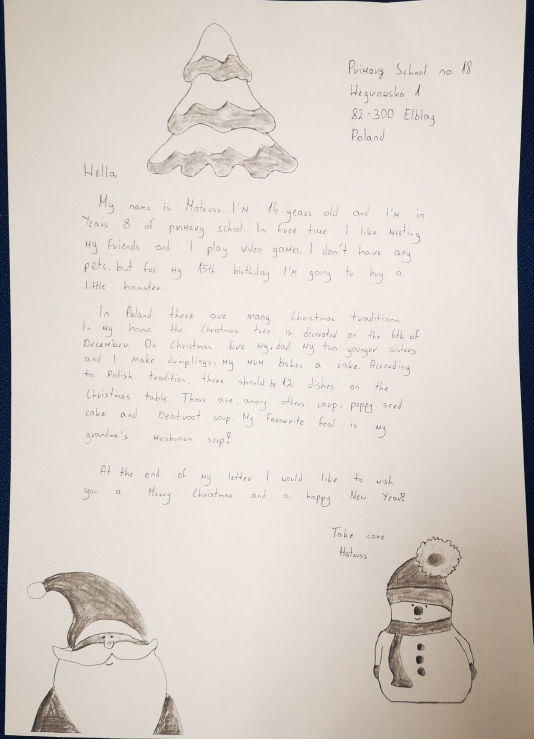 Primary School no. 18
Węgrowska 1
82-300 Elbląg
Poland
Hello,
My name is Mateusz. I'm 14 years old and I'm in
Years 8 of primary school. In free time I like meeting
my friends and I play video games. I don't have any
pets, but for my 15th birthday I'm going to buy a
little hamster.
In Poland there are many Christmas traditions.
In my house the Christmas tree is decorated on the 6th of
December. On Christmas Eve my, dad my two younger sisters
and I make dumplings, my mum bakes a cake. According
to Polish tradition, there should be 12 dishes on the
Christmas table. There are, among others: carp, poppy seed
cake and beatroot soup. My favourite food is my
grandma's mushroom soup!
At the end of my letter I would like to wish
you a Merry Christmas and a happy New Year!
Take care
Mateusz